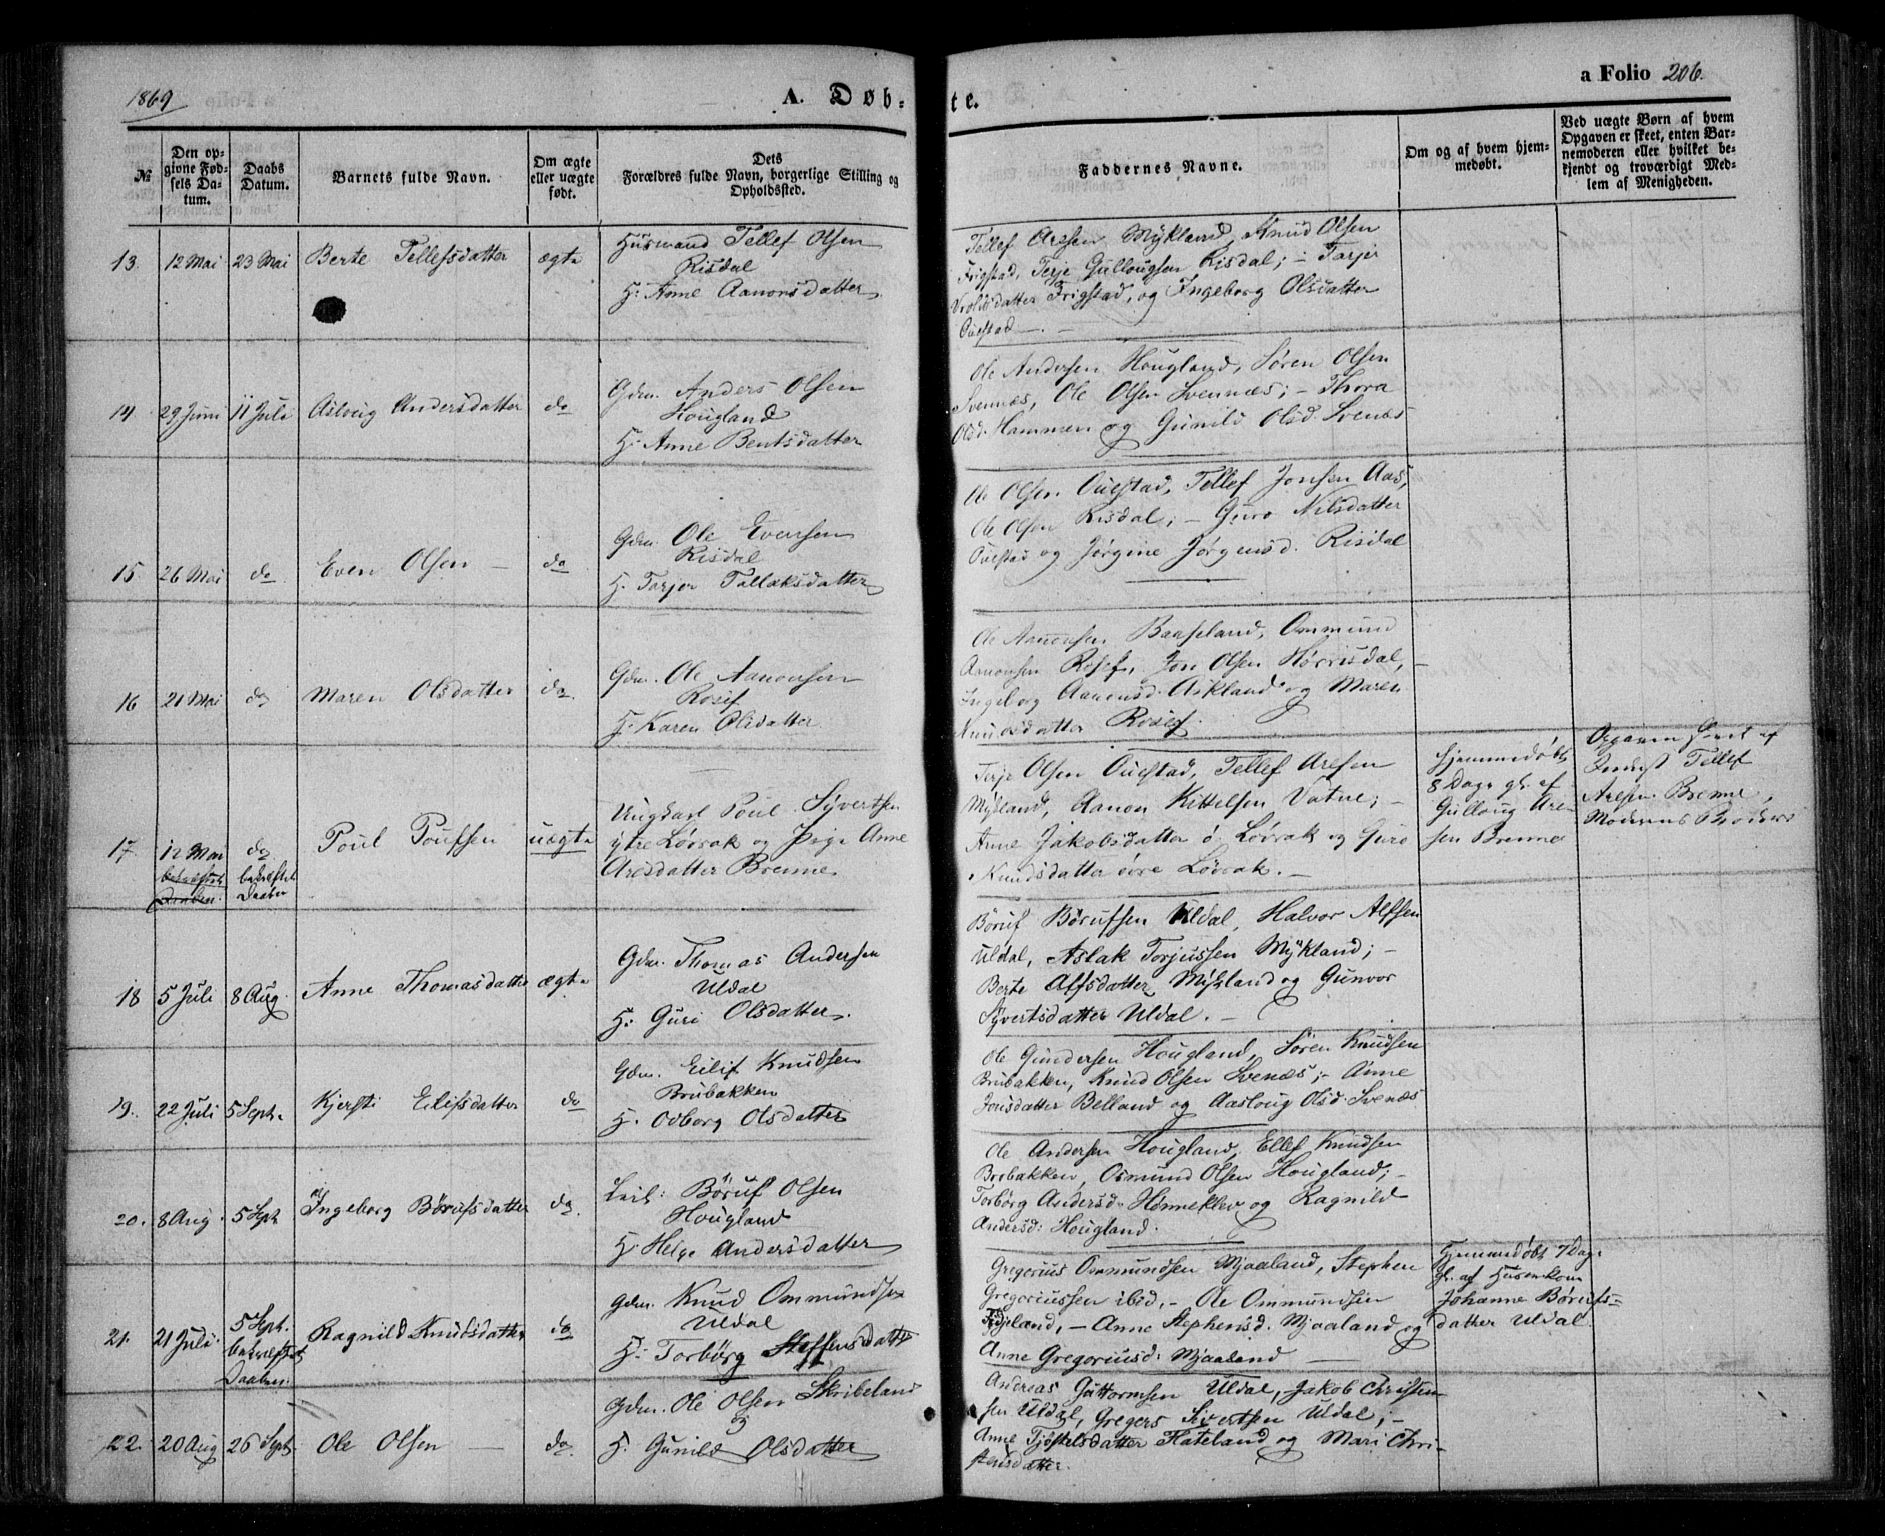 1869
A. Døb-
te.
a Folio 206.
№
Den op-
givne Fød-
sels Da-
tum.
Daabs
Datum.
Barnets fulde Navn.
Om ægte
eller uægte
født.
Dets
Forældres fulde Navn, borgerlige Stilling og
Opholdssted.
Faddernes Navne.
Om og af hvem hjem-
medøbt.
Ved uægte Børn af hvem
Opgaven er skeet, enten Bar-
nemoderen eller hvilket be-
kjendt og troværdigt Med-
lem af Menigheden.
13. 12 Mai 23 Mai Berte Tellefsdatter ægte
Husmand Tellef Olsen
Risdal
H: Anne Aanonsdatter
Tellef Aresen Mykland, Knud Olsen
Frigstad, Terje Gullougsen Risdal; - Tarjer
Frigstad, og Ingeborg Olsdatter
Ouestad
14. 29 Juni 11 Juli Asloug Andersdatter do
Gdm. Anders Olsen
Hougland
H: Anne Bentsdatter
Ole Andersen Hougland, Søren Olsen
Svennæs, Ole Olsen Svennæs; - Thora
Olsd. Hammen og Gunild Olsd. Svenæs
15. 26 Mai do Even Olsen - do
Gdm. Ole Evensen
Risdal
H. Tarjer Tallaksdatter
Ole Olsen Ouestad, Tellef Jonsen Aas,
Ole Olsen Risdal; - Guro Nilsdatter
Ouestad og Jørgine Jørgensd. Risdal
16 21 Mai do Maren Olsdatter do
Gdm. Ole Aanonsen
Rosef
H: Karen Olsdatter
Ole Aanonsen Baaseland, Ommund
Aanonsen Rosef, Jon Olsen Hørrisdal, -
Ingeborg Aanonsd. Askland og Maren
Knudsdatter Rosef.
17. 12 Mai
bekræftet
Daaben.
do
bekræftet
Daaben
Poul Poulsen uægte
Ungkarl Poul Syvertsen
ytre Løvrak og Pige Anne
Aresdatter Brenne
Terje Olsen Ouestad, Tellef Aresen
Mykland, Aanon Kittelsen Vatne; -
Anne Jakobsdatter ø. Løvrak og Guro
Knudsdatter øvre Løvrak. -
Hjemmedøbt
8 Dage gl. af
Gulloug Are-
sen Brenne
Opgaven skeet af
Tellef
Aresen Brenne,
Moderens Broder
18 5 Juli 8 Aug. Anne Thomasdatter ægte
Gdm. Thomas Andersen
Uldal
H: Guri Olsdatter.
Børuf Børufsen Uldal, Halvor Alfsen
Uldal, Aslak Torjussen Mykland; -
Berte Alfsdatter Mykland og Gunvor
Syvertsdatter Uldal. -
19. 22 Juli 5 Sept. Kjersti Eilifsdatter do
Gdm. Eilif Knudsen
Brubakken
H. Odborg Olsdatter
Ole Gundersen Hougland, Søren Knudsen
Brubakken, Knud Olsen Svenæs; - Anne
Jonsdatter Belland og Aasloug Olsd. Svenæs
20. 8 Aug. 5 Sept. Ingeborg Børufsdatter do.
Leil: Børuf Olsen
Hougland
H: Helge Andersdatter
Ole Andersen Hougland, Ellef Knudsen
Brobakken, Osmund Olsen Hougland; -
Torbørg Andersd. Hønneklev og Ragnild
Andersd: Hougland.
21. 21 Juli
5 Sept.
bekræftet
Daaben.
Ragnild Knudsdatter do
Gdm. Knud Ommundsen
Uldal
H: Torbørg Steffensdatter
Gregorius Ommundsen Mjaaland, Stephen
Gregoriussen ibid, - Ole Ommundsen
- Anne Stephensd. Mjaaland og
Anne Gregoriusd: Mjaaland
Hjemmedøbt 7 Dage
gl. af Huuskone
Johanne Børufs-
datter Uldal
22. 20 Aug 26 Sept. Ole Olsen - do.
Gdm. Ole Olsen Skribeland
H. Gunild Olsdatter
Andreas Guttormsen Uldal, Jakob Christen-
sen Uldal, Gregers Sivertsen Uldal; -
Anne Tjøstelsdatter Hateland og Mari Chri-
stensdatter.